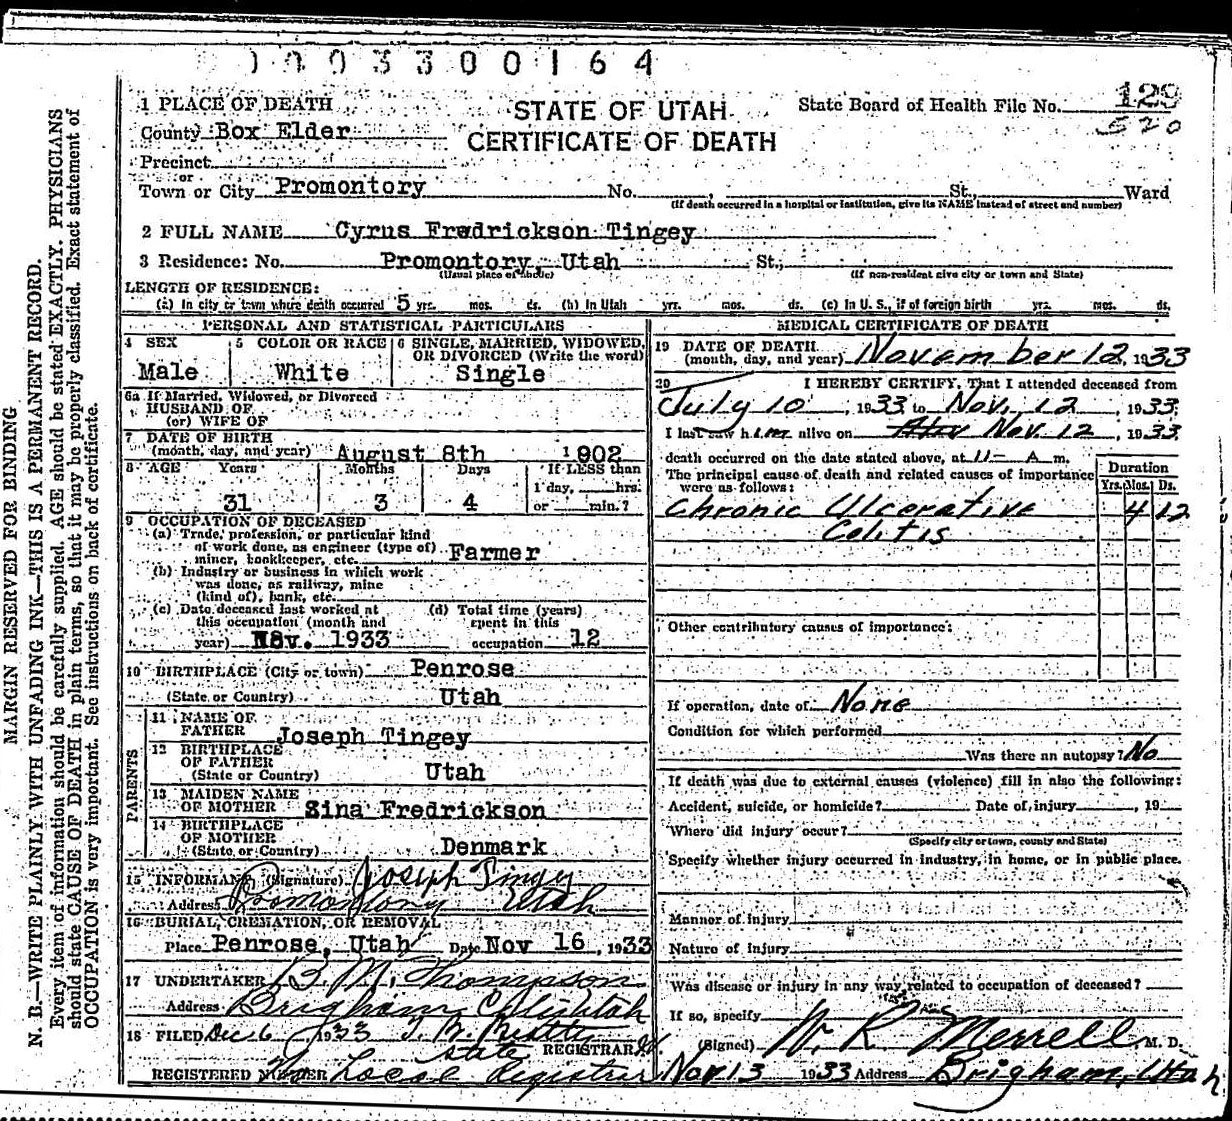 1003300164
1 PLACE OF DEATH
STATE OF UTAH
CERTIFICATE OF DEATH
State Board of Health File No. 129
520
County Box Elder
Precinct
or
Town or City Promontory No. , St., Ward
(If death occurred in a hospital or institution, give its NAME instead of street and number)
2 FULL NAME Cyrus Fredrickson Tingey
3 Residence: No. Promontory, Utah St.,
(Usual place of abode) (If non-resident give city or town and State)
LENGTH OF RESIDENCE:
(a) In city or town where death occurred 5 yrs. mos. ds. (b) In Utah yrs. mos. ds. (c) In U. S., if of foreign birth yrs. mos. ds.
PERSONAL AND STATISTICAL PARTICULARS
4 SEX Male
5 COLOR OR RACE White
6 SINGLE, MARRIED, WIDOWED, OR DIVORCED (Write the word) Single
6a If Married, Widowed, or Divorced
HUSBAND OF
(or) WIFE OF
7 DATE OF BIRTH
(month, day, and year) August 8th 1902
8 AGE Years Months Days If LESS than
1 day, hrs.
31 3 4 or min.?
9 OCCUPATION OF DECEASED
(a) Trade, profession, or particular kind
of work done, as engineer (type of)
miner, bookkeeper, etc. Farmer
(b) Industry or business in which work
was done, as railway, mine
(kind of), bank, etc.
(c) Date deceased last worked at
this occupation (month and
year) Nov. 1933
(d) Total time (years)
spent in this
occupation 12
10 BIRTHPLACE (City or town) Penrose
(State or Country) Utah
PARENTS
11 NAME OF
FATHER Joseph Tingey
12 BIRTHPLACE
OF FATHER
(State or Country) Utah
13 MAIDEN NAME
OF MOTHER Zina Fredrickson
14 BIRTHPLACE
OF MOTHER
(State or Country) Denmark
15 INFORMANT (Signature) Joseph Tingey
Address Promontory Utah
16 BURIAL, CREMATION, OR REMOVAL
Place Penrose, Utah Date Nov 16, 1933
17 UNDERTAKER B. M. Thompson
Address Brigham City Utah
18 FILED Dec 6 1933
REGISTRAR
State
REGISTERED NUMBER No Local Registrar
MEDICAL CERTIFICATE OF DEATH
19 DATE OF DEATH
(month, day, and year) November 12, 1933
20 I HEREBY CERTIFY, That I attended deceased from
July 10, 1933 to Nov. 12, 1933;
I last saw him alive on Nov. 12, 1933
death occurred on the date stated above, at 11- A m.
The principal cause of death and related causes of importance
were as follows:
Duration
Yrs. Mos. Ds.
Chronic Ulcerative 4 12
Colitis
Other contributory causes of importance:
If operation, date of None
Condition for which performed
Was there an autopsy? No
If death was due to external causes (violence) fill in also the following:
Accident, suicide, or homicide? Date of injury , 19
Where did injury occur?
(Specify city or town, county and State)
Specify whether injury occurred in industry, in home, or in public place.
Manner of injury
Nature of injury
Was disease or injury in any way related to occupation of deceased?
If so, specify
(Signed) W. R. Merrell M. D.
Nov 13 1933 Address Brigham, Utah
MARGIN RESERVED FOR BINDING
N. B.—WRITE PLAINLY WITH UNFADING INK—THIS IS A PERMANENT RECORD.
Every item of information should be carefully supplied. AGE should be stated EXACTLY. PHYSICIANS
should state CAUSE OF DEATH in plain terms, so that it may be properly classified. Exact statement of
OCCUPATION is very important. See instructions on back of certificate.